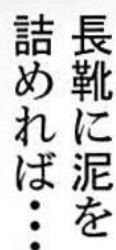 長靴に泥を
詰めれば…